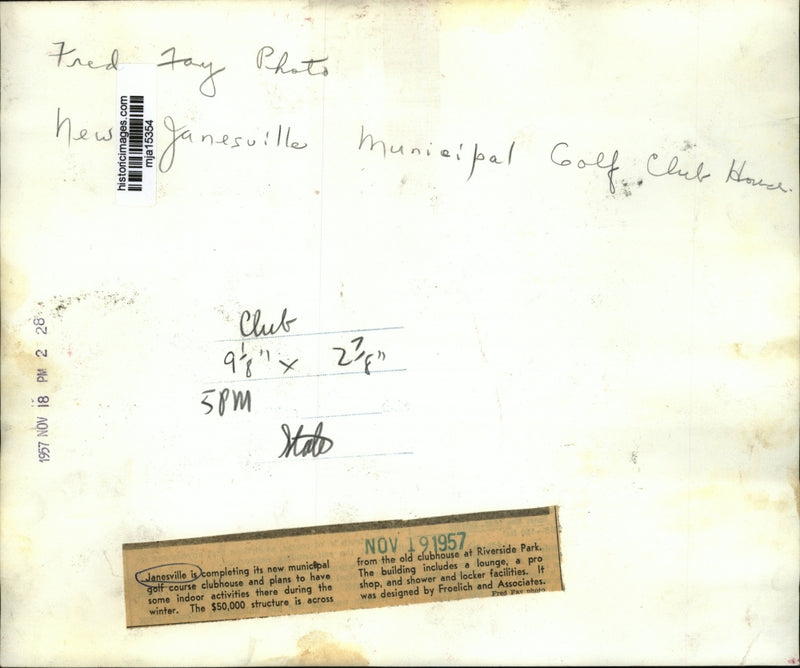 Fred Fay Photo
New Janesville Municipal Golf Club House.
historicimages.com
mja15354
1957 NOV 18 PM 2 28
Club
9 1/8" x 2 7/8"
5PM
State
NOV 19 1957
Janesville is completing its new municipal
golf course clubhouse and plans to have
some indoor activities there during the
winter. The $50,000 structure is across
from the old clubhouse at Riverside Park.
The building includes a lounge, a pro
shop, and shower and locker facilities. It
was designed by Froelich and Associates.
Fred Fay photo